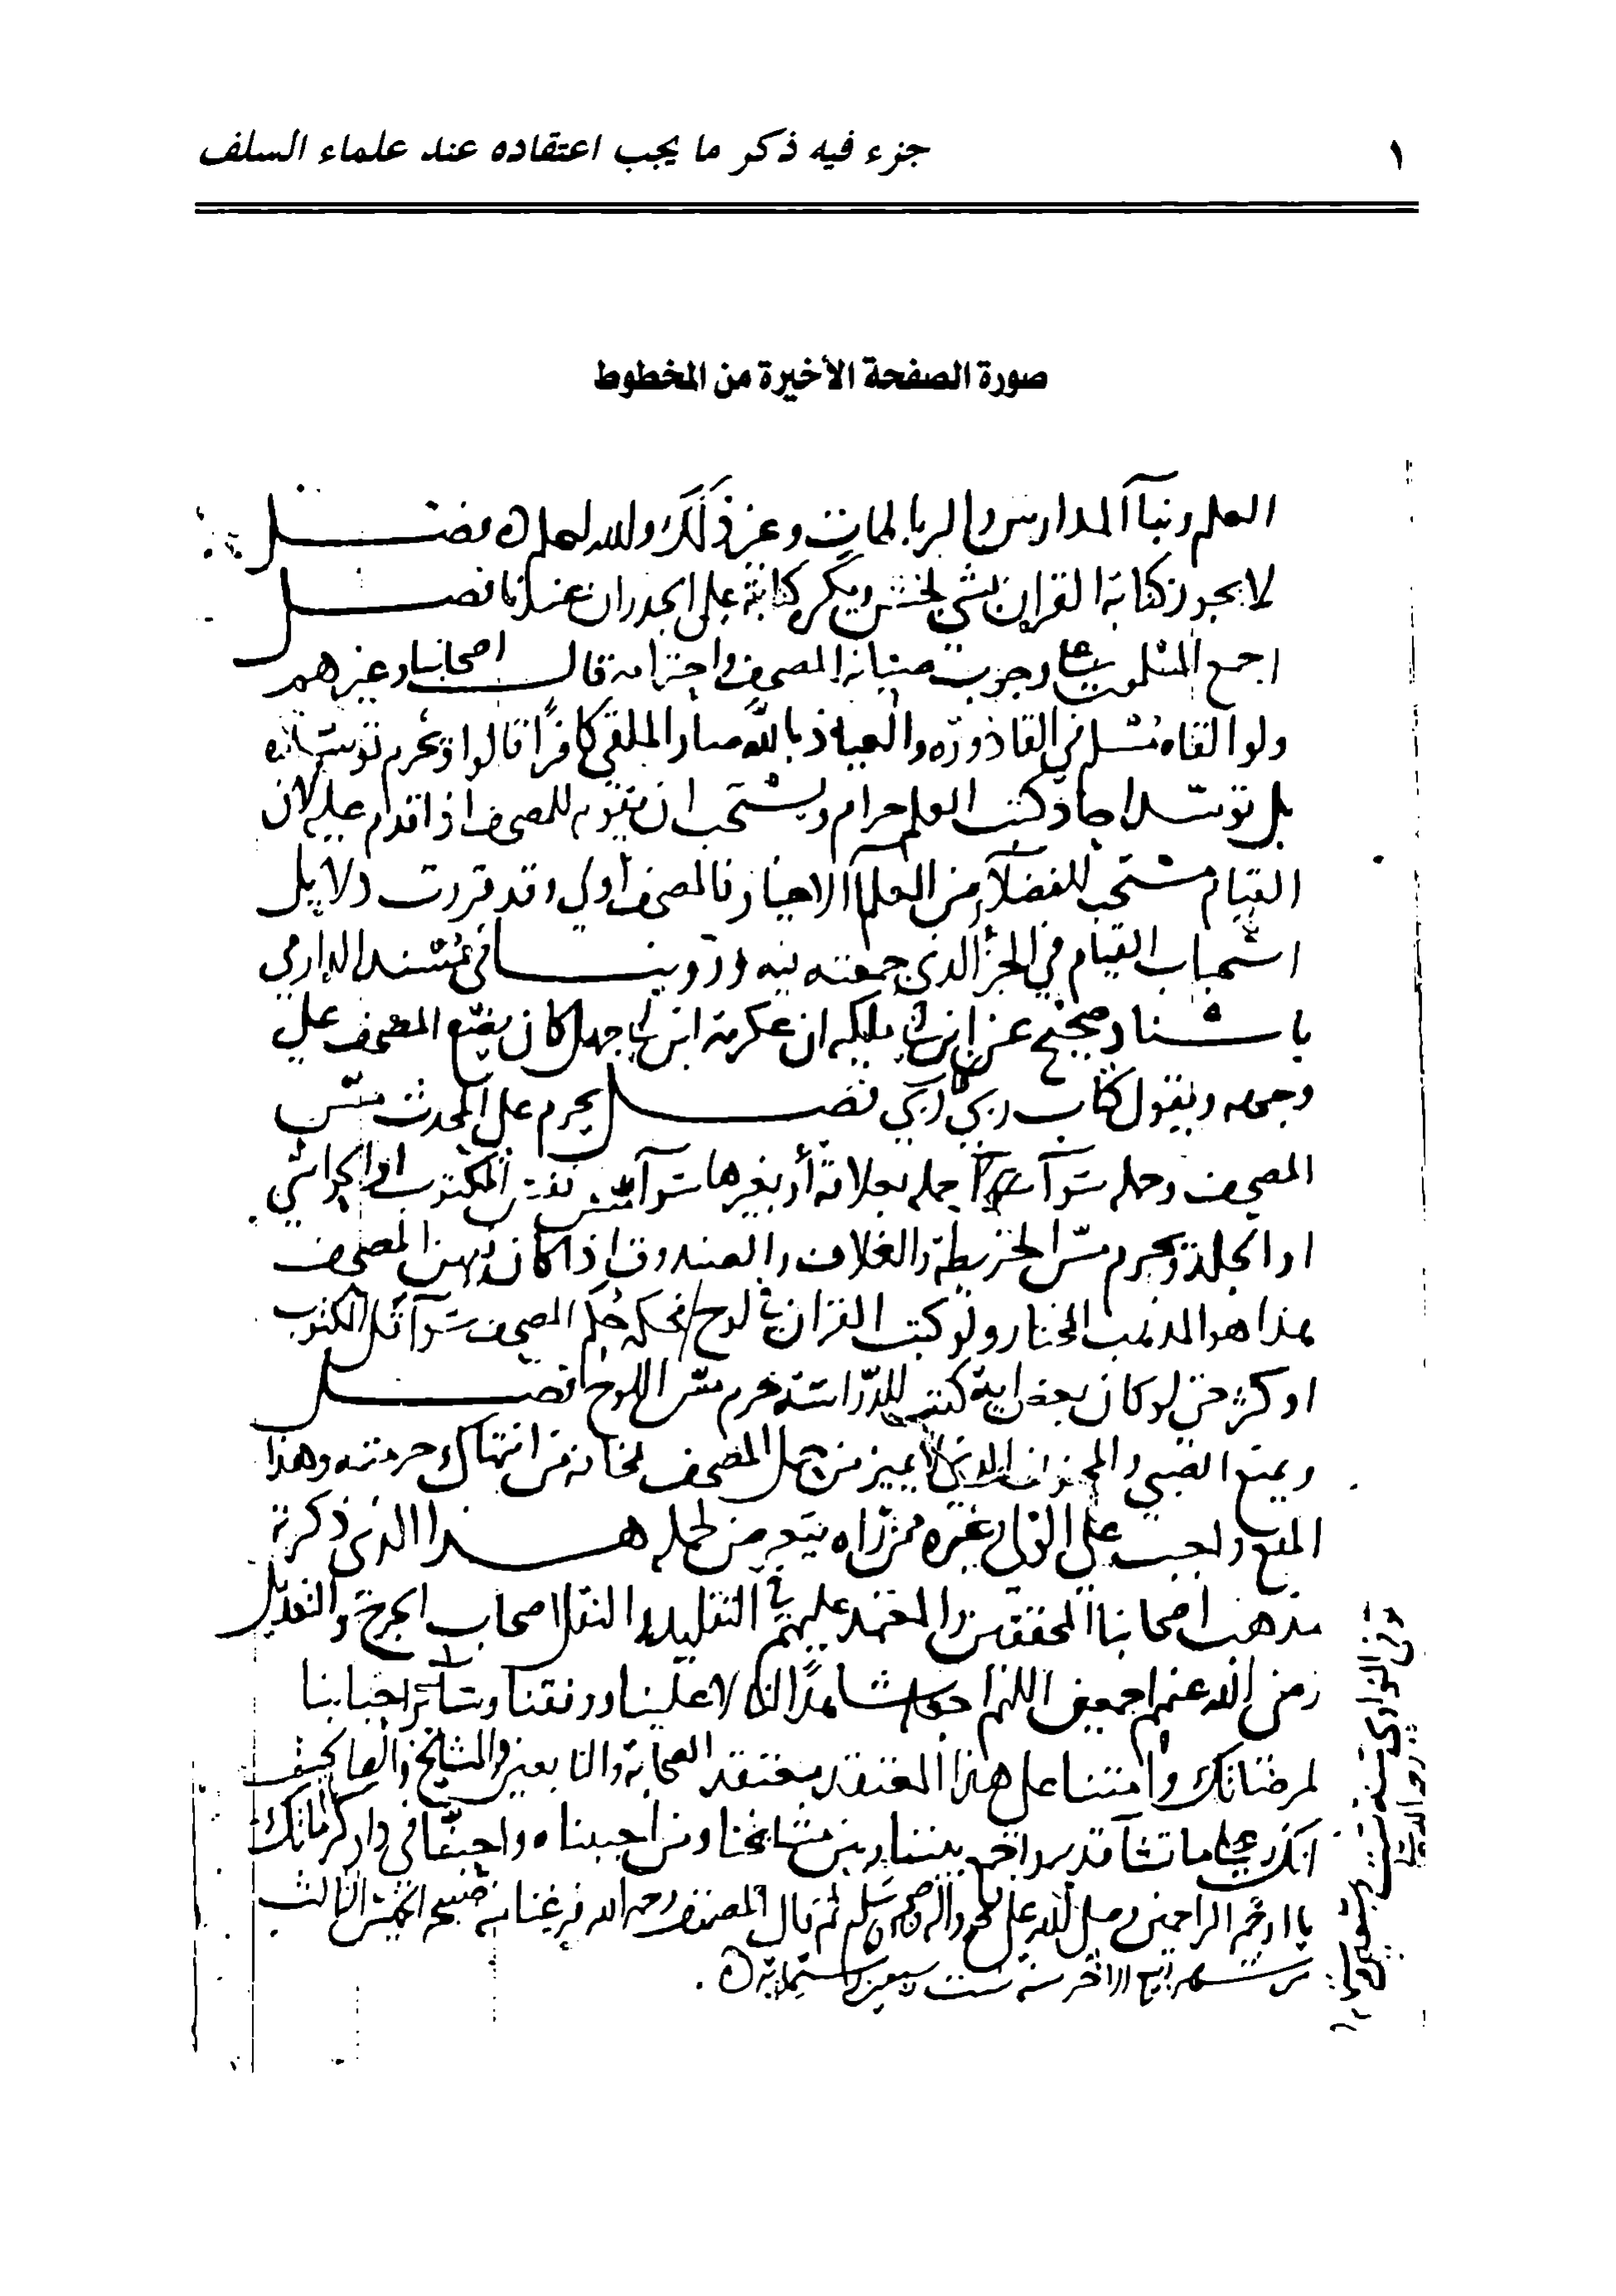 جزء فيه ذكر ما يجب اعتقاده عند علماء السلف
١
صورة الصفحة الأخيرة من المخطوط
العلم وبنآ المدارس والرباطات وغير ذلك ولله الحمد ه فصل
لا يجوز كتابة القران بشي نجس ويكره كتابته على الجدران عندنا فصل
اجمع المسلمون على وجوب صيانة المصحف واحترامه قال اصحابنا وغيرهم
ولو القاه مسلم في القاذورة والعياذ بالله صار الملقي كافرًا قالوا ويحرم توسده
بل توسد احاد كتب العلم حرام ويستحب ان يقوم للمصحف اذا قدم عليه لان
القيام مستحب للفضلآ من العلمآ الاخيار فالمصحف اولى وقد قررت دلايل
استحباب القيام في الجزء الذي جمعته فيه وروينا في مسند الدارمي
باسناد صحيح عن ابن ابي مليكه ان عكرمة ابن ابي جهل كان يضع المصحف على
وجهه ويقول كتاب ربي كتاب ربي فصل يحرم على المحدث مس
المصحف وحمله سوآ حمله بعلاقة أو بغيرها سوآ مس نفس المكتوب او الحواشي
او الجلد ويحرم مس الخريطة والغلاف والصندوق اذا كان فيهن المصحف
هذا هو المذهب المختار ولو كتب القران في لوح فحكمه حكم المصحف سوآ قل المكتوب
او كثر حتى لو كان بعض اية كتب للدراسة حرم مس اللوح فصل
ويمنع الصبي والمجنون الذي لا يميز من حمل المصحف مخافة من انتهاك حرمته وهذا
المنع واجب على الولي وغيره ممن رآه يتعرض لحمله هذا الذي ذكرته
مذهب اصحابنا المحققين والمعتمد عليهم في التقليد والنقل اصحاب الجرح والتعديل
رضي الله عنهم اجمعين اللهم لا علينا ورفقتنا وسآئر احبابنا
لمرضاتك وامتنا على هذا المعتقد معتقد الصحابة والتابعين والمشايخ والصالحين
انك على ما تشآ قدير واجمع بيننا وبين مشايخنا ومن احبناه واحبنا في دار كرامتك
يا ارحم الراحمين وصلى الله على محمد واله وصحبه وسلم ثم قال المصنف رحمه الله فرغنا منه صبيحة الخميس الثالث
من شهر ربيع الاخر سنة ست وسبعين وستماية ه .
وفي النواوي سنة ست وسبعين
رحمه الله